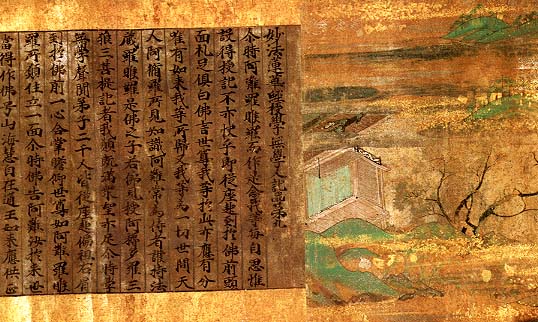 妙法蓮華經授學無學人記品第九
尒時阿難羅睺羅而作是念我等每自思惟
設得授記不亦快乎即從座起到於佛前頭
面礼足俱白佛言世尊我等於此亦應有分
唯有如來我等所歸又我等為一切世間天
人阿脩羅所見知識阿難常為侍者護持法
藏羅睺羅是佛之子若佛見授阿耨多羅三
藐三菩提記者我願既滿衆望亦足尒時學
無學聲聞弟子二千人皆從座起偏袒右肩
到於佛前一心合掌瞻仰世尊如阿難羅睺
羅所願住立一面尒時佛告阿難汝於來世
當得作佛号山海慧自在通王如來應供正